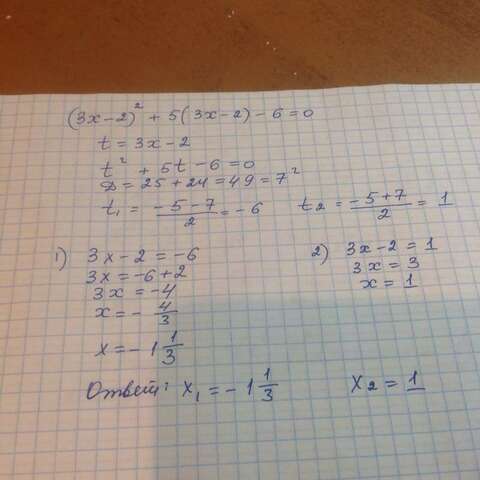 (3x-2)² + 5(3x-2) - 6 = 0
t = 3x-2
t² + 5t - 6 = 0
D = 25 + 24 = 49 = 7²
t₁ = (-5-7)/2 = -6    t₂ = (-5+7)/2 = 1
1) 3x-2 = -6    2) 3x-2 = 1
3x = -6+2    3x = 3
3x = -4    x = 1
x = - 4/3
x = -1 1/3
Ответ: x₁ = -1 1/3    x₂ = 1